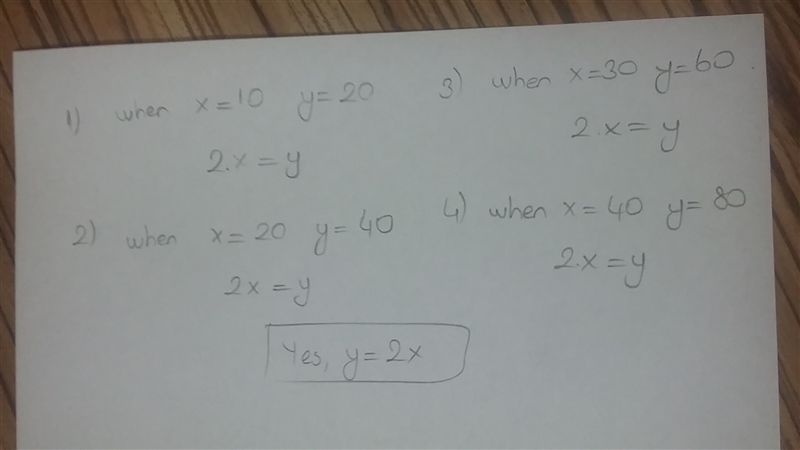 1) when x=10 y=20
2.x=y
2) when x=20 y=40
2x=y
3) when x=30 y=60.
2.x=y
4) when x=40 y=80
2.x=y
Yes, y=2x